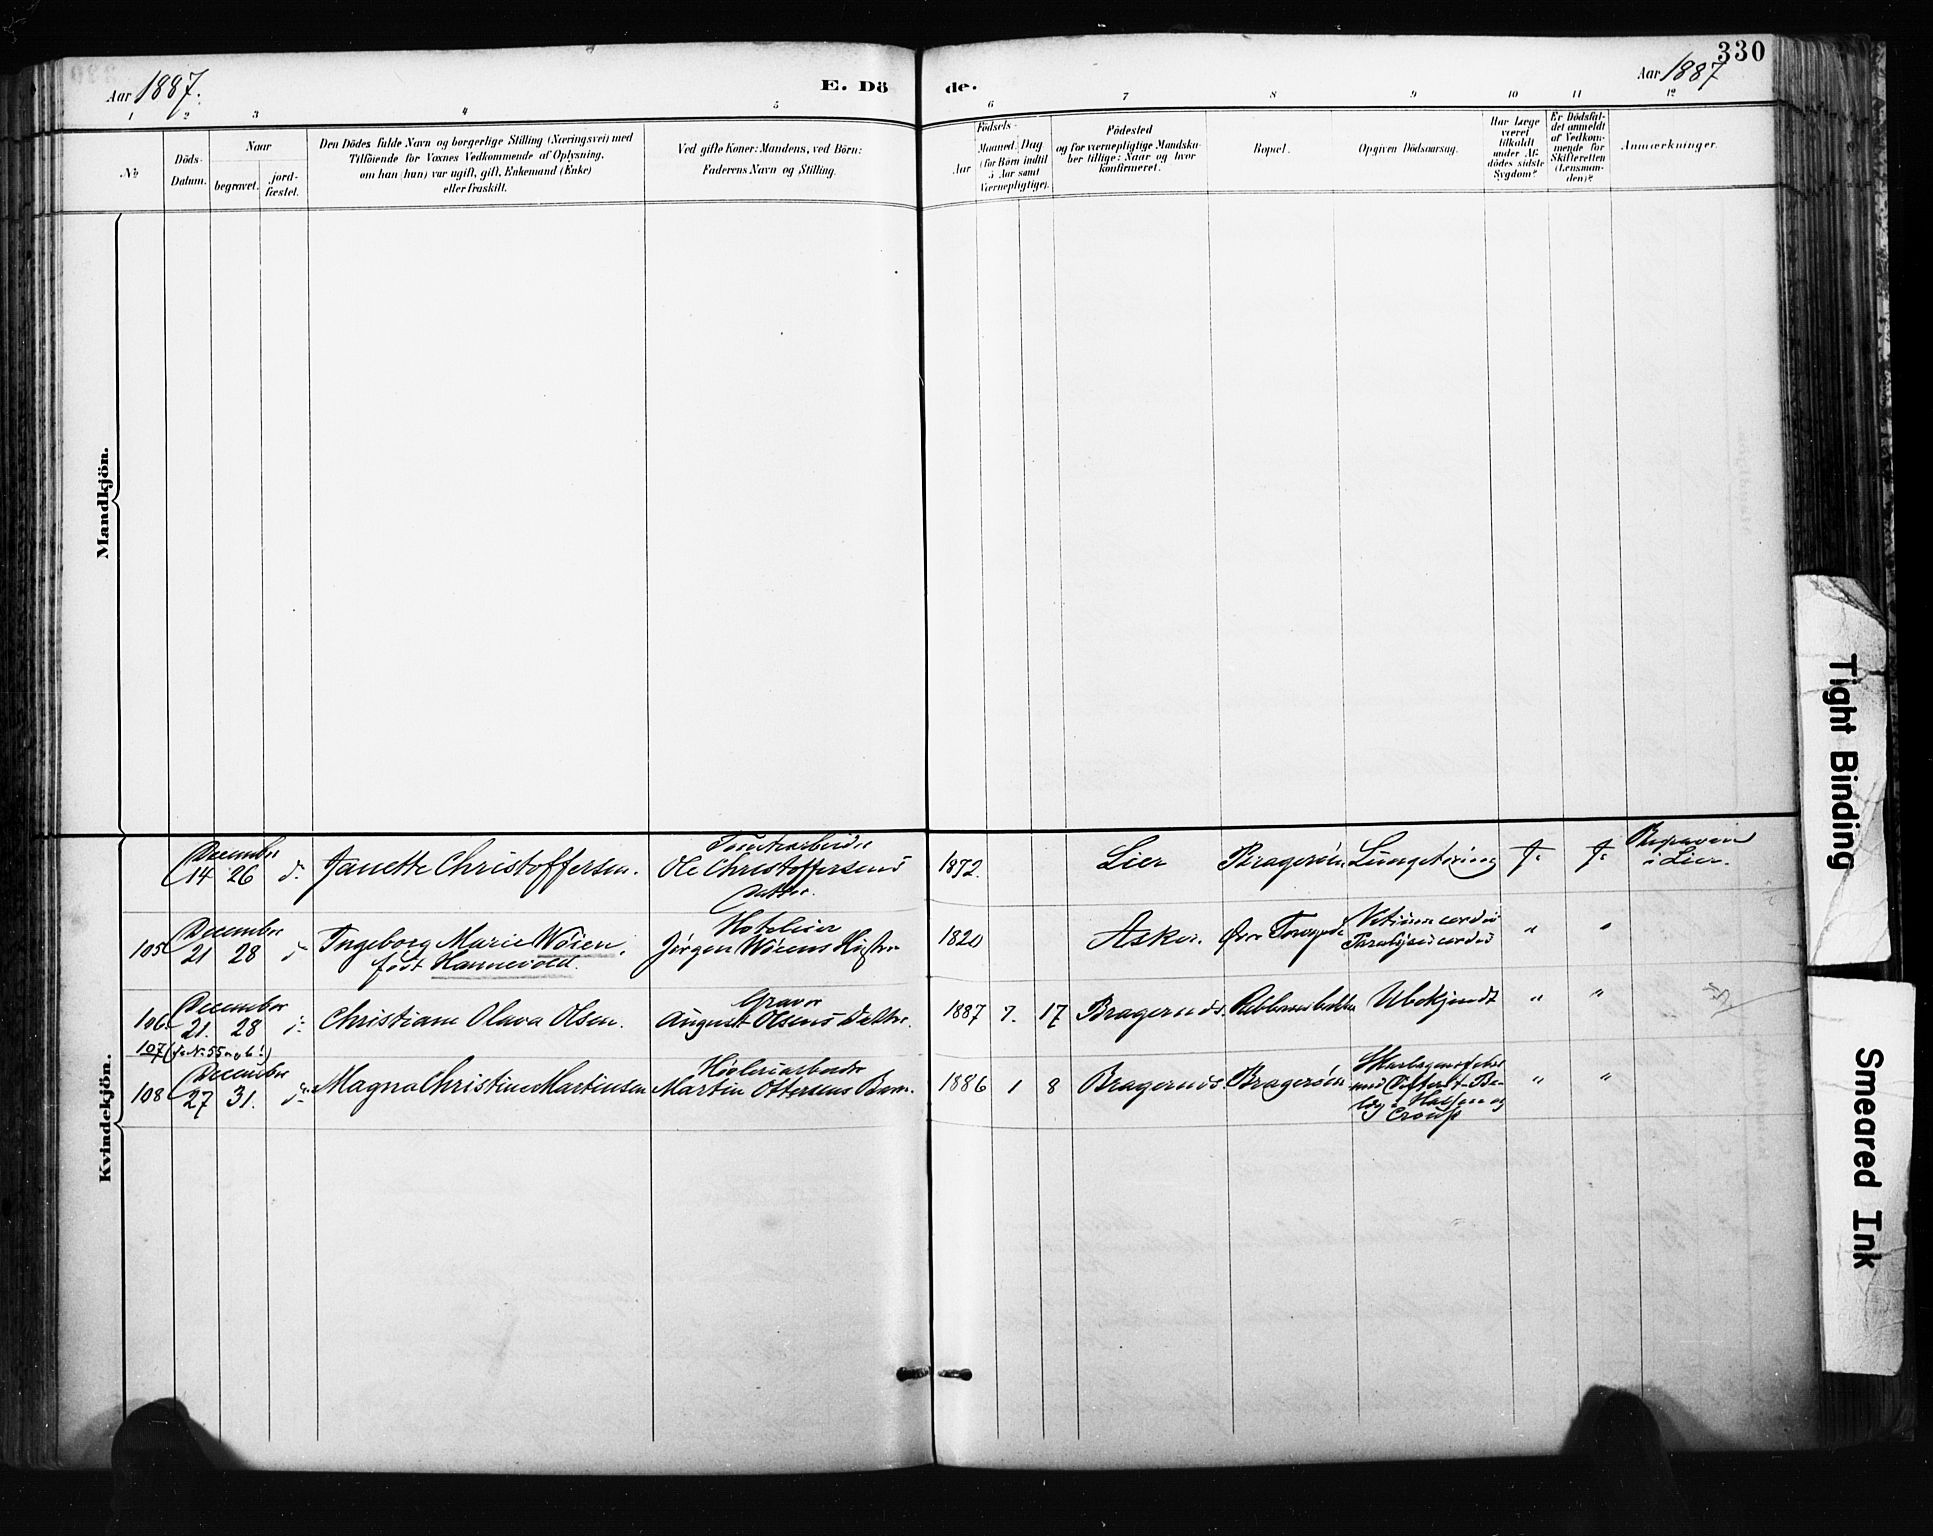 330
Aar 1887.
E. Dö
de.
Aar 1887
1
2
3
4
5
6
7
8
9
10
11
12
No
Döds-
Datum.
Naar
begravet.
jord-
fæstet.
Den Dödes fulde Navn og borgerlige Stilling (Næringsvei) med
Tilföiende for Voxnes Vedkommende af Oplysning,
om han (hun) var ugift, gift, Enkemand (Enke)
eller fraskilt.
Ved gifte Koner: Mandens, ved Börn:
Faderens Navn og Stilling.
Födsels-
Aar
Maaned
Dag
(for Börn indtil
5 Aar samt
Værnepligtige).
Födested
og for værnepligtige Mandsku-
ber tillige: Naar og hvor
konfirmeret.
Bopæl.
Opgiven Dödsaarsag.
Har Læge
været
tilkaldt
under Af-
dödes sidste
Sygdom?
Er Dödsfal-
det anmeldt
af Vedkom-
mende for
Skifteretten
(Lensman-
den)?
Anmærkninger.
Mandkjön.
Kvindekjön.
December
14 26 d. Janette Christoffersen.
Tomtearbeider
Ole Christoffersens
Datter.
1872. Lier Bragerøen Lungetæring J. J. Begraven
i Lier.
105 December
21 28 d Ingeborg Marie Wøien,
født Hannevold.
Hoteleier
Jørgen Wøiens Hustru
1820 Asker. Øvre Torvgade Vitium cordis
Paralysis cordis " "
106. December
21. 28 d: Christiane Olava Olsen.
Graver
August Olsens Datter.
1887 7. 17 Bragernes. Ubekjendt " "
107 (se No 55 a og b!)
108 December
27 31. d: Magna Christine Martinsen
Høvleriarbeider
Martin Ottersens Barn.
1886 1 8 Bragernes. Bragerøen Skarlagensfeber
med Difterit-Be-
læg i Halsen og
Croup " "
Tight Binding
Smeared Ink